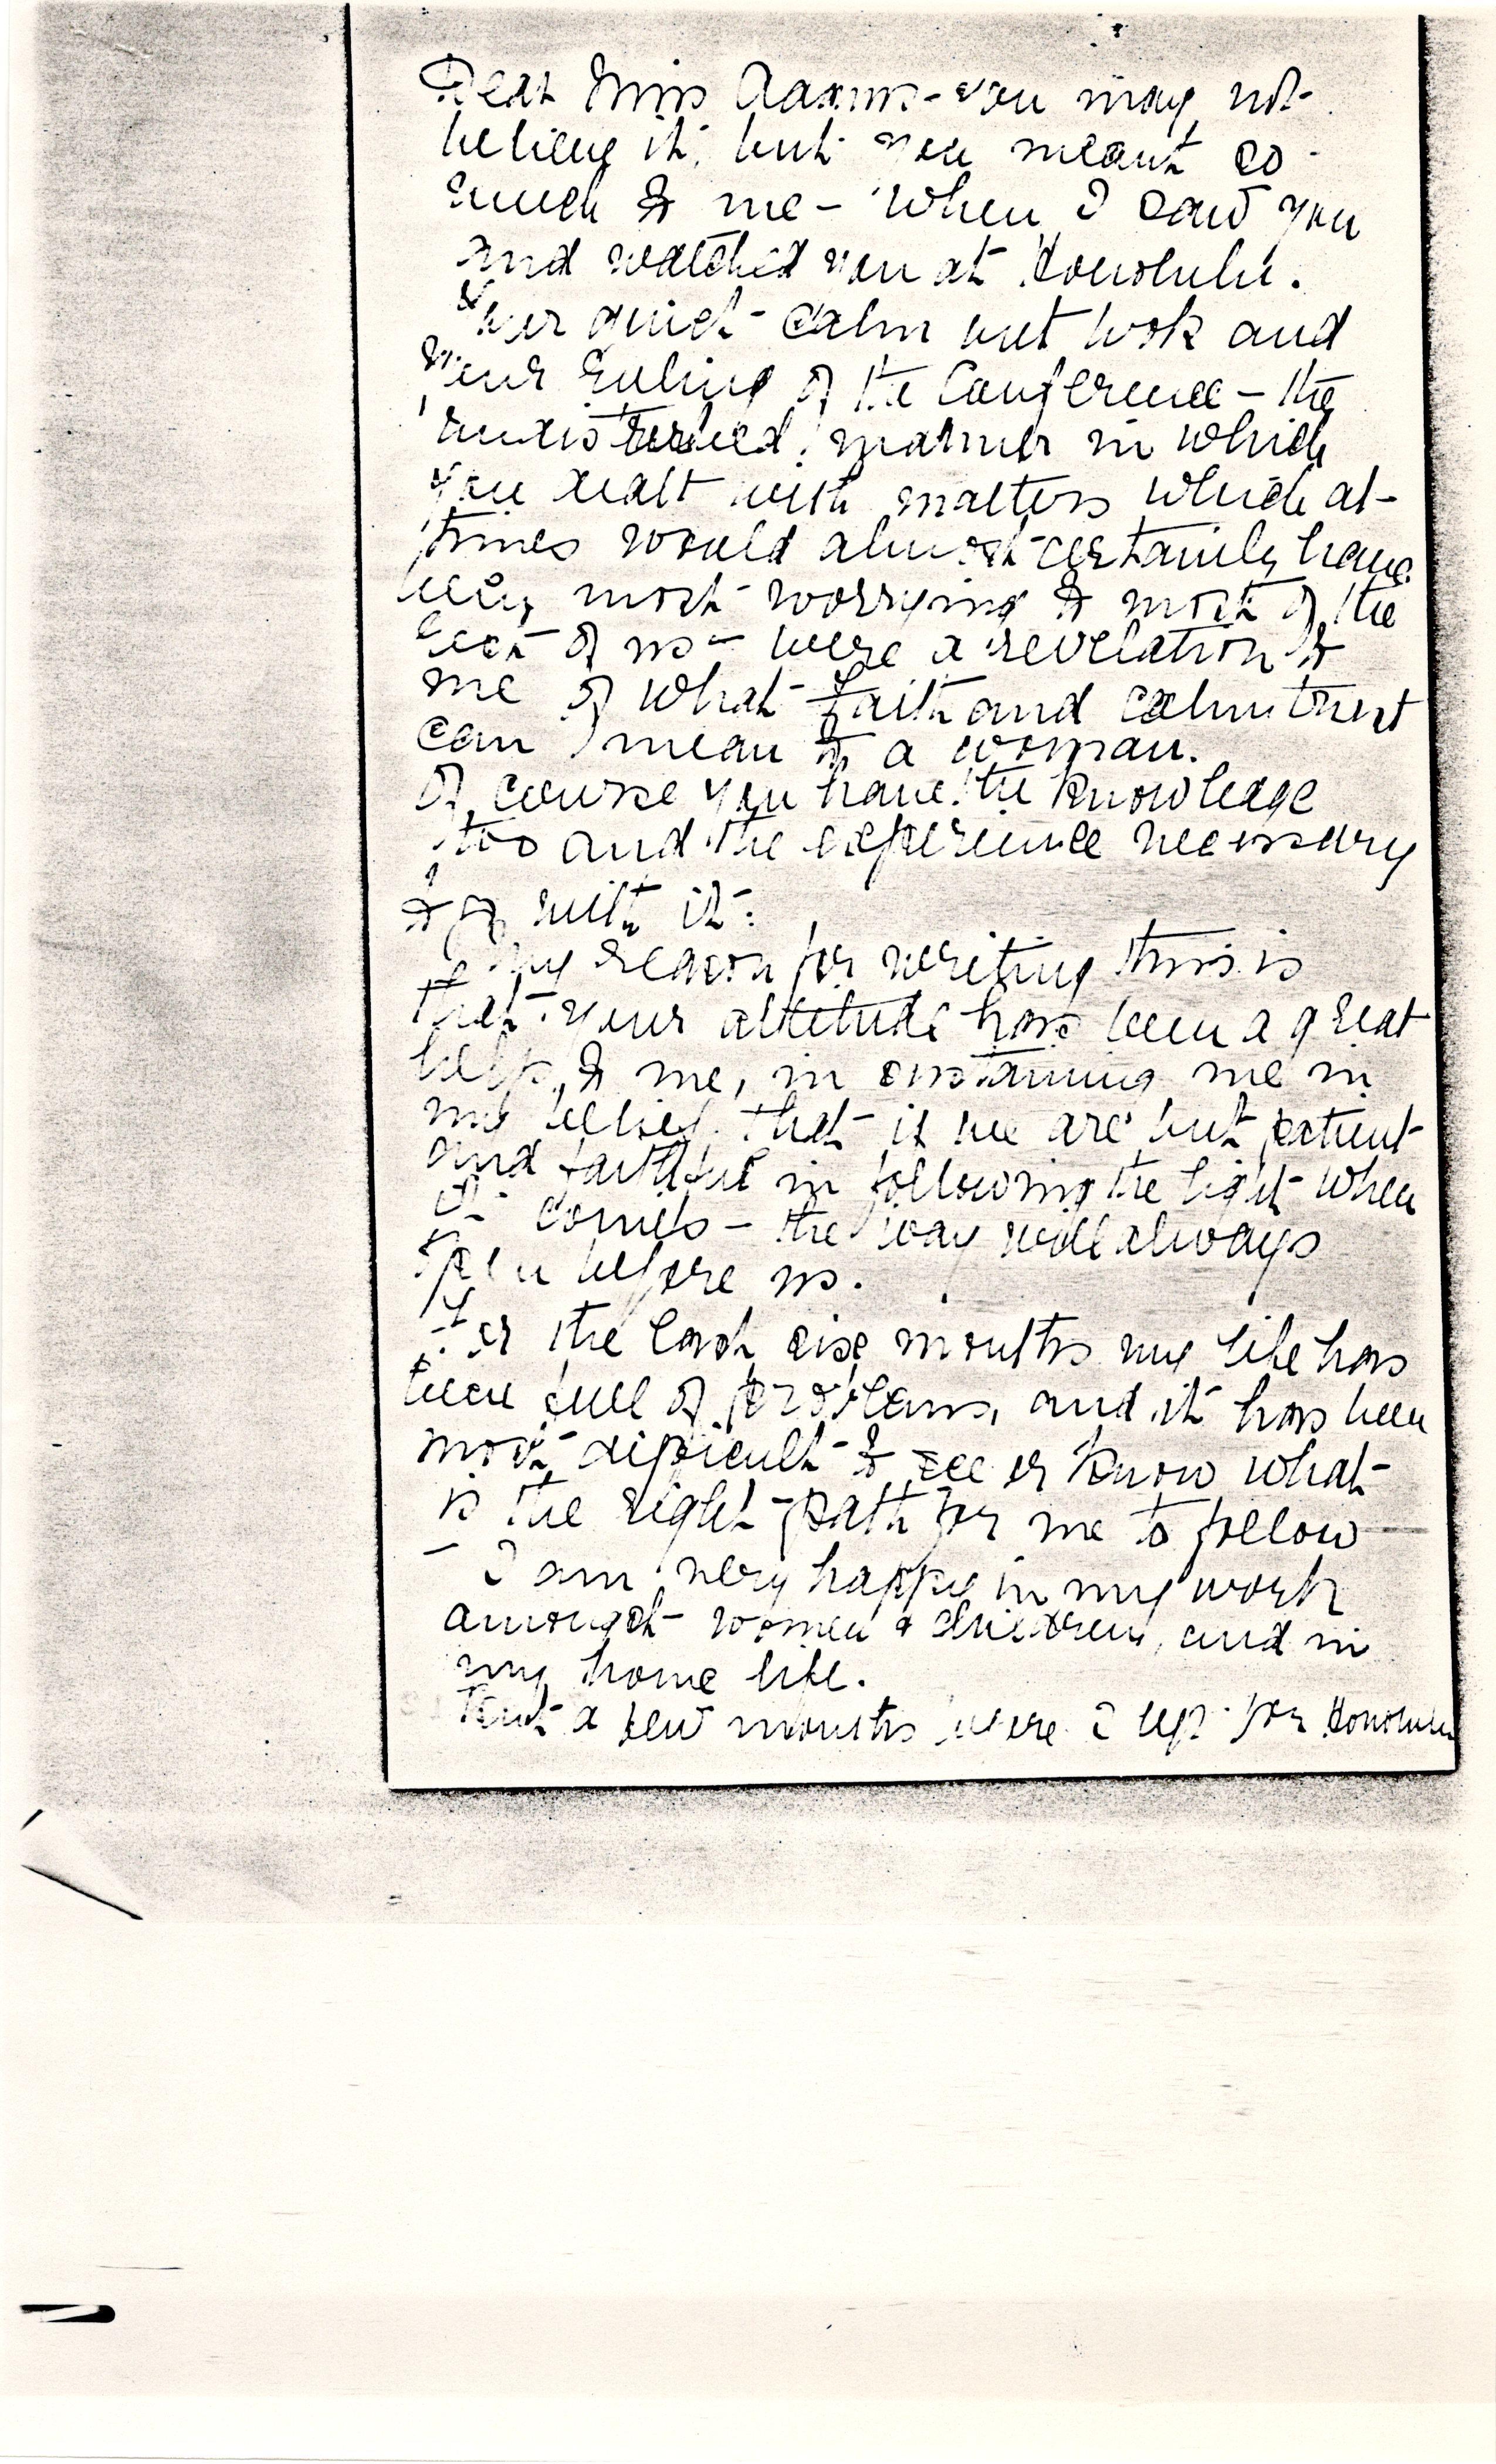 Dear Miss Addams - you may not
believe it, but you meant so
much to me - when I saw you
and watched you at Honolulu.
Your quiet calm out look and
your ruling of the Conference - the
undisturbed manner in which
you dealt with matters which at
times would almost certainly have
been most worrying to most of the
rest of us - were a revelation to
me of what faith and calm trust
can mean to a woman.
Of course you have the knowledge
too and the experience necessary
to go with it.
My reason for writing this is
that your attitude has been a great
help to me, in sustaining me in
my belief that if we are but patient
and faithful in following the light when
it comes - the way will always
open before us.
For the last six months my life has
been full of problems, and it has been
most difficult to see or know what
is the right path for me to follow
- I am very happy in my work
amongst women & children, and in
my home life.
But a few months before I left for Honolulu